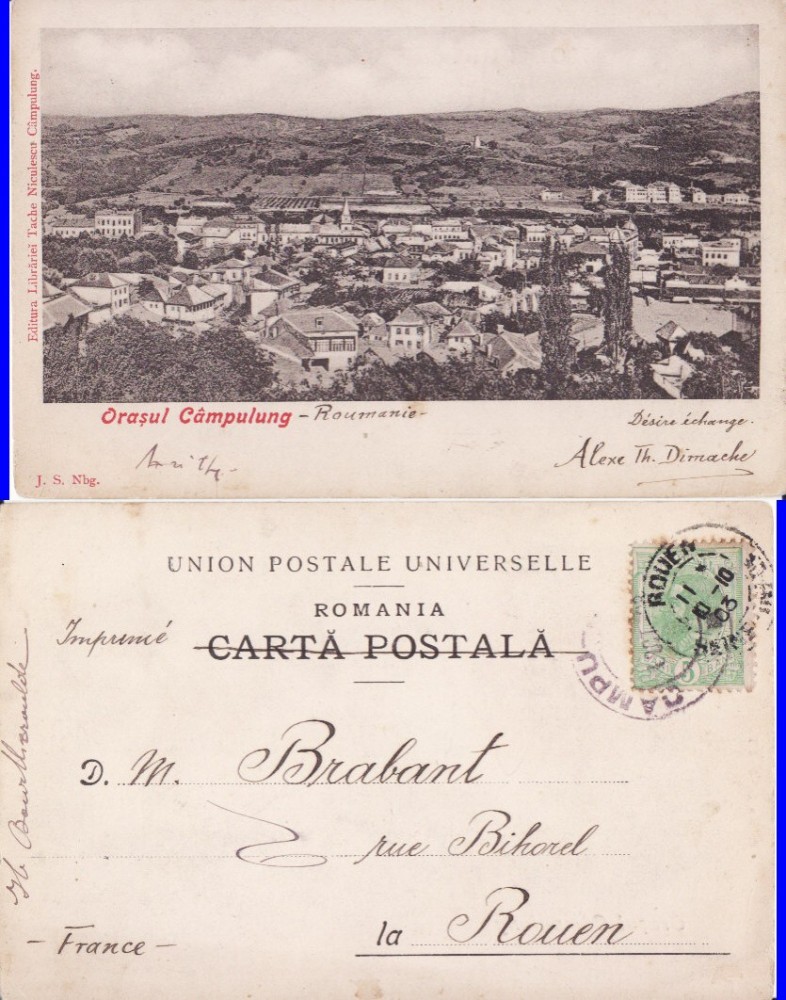 Editura Librăriei Tache Niculescu Câmpulung.
Orașul Câmpulung - Roumanie -
Désire échange.
Alexe Th. Dimache
J. S. Nbg.
UNION POSTALE UNIVERSELLE
ROMANIA
Imprimé
CARTĂ POSTALĂ
ROUEN
11
10-10
03
CAMPU
5
D. M. Brabant
rue Bihorel
la Rouen
- France -